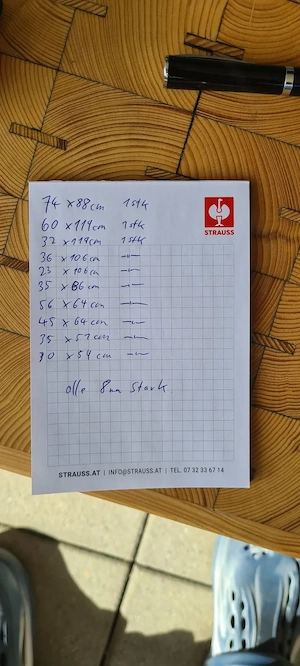 74 x 88 cm 1 stk
60 x 119 cm 1 stk
32 x 119 cm 1 stk
36 x 106 cm -"-
23 x 106 cm -"-
35 x 86 cm -"-
56 x 64 cm -"-
45 x 64 cm -"-
35 x 51 cm -"-
30 x 54 cm -"-
olle 8mm stark
STRAUSS
STRAUSS.AT | INFO@STRAUSS.AT | TEL. 07 32 33 67 14